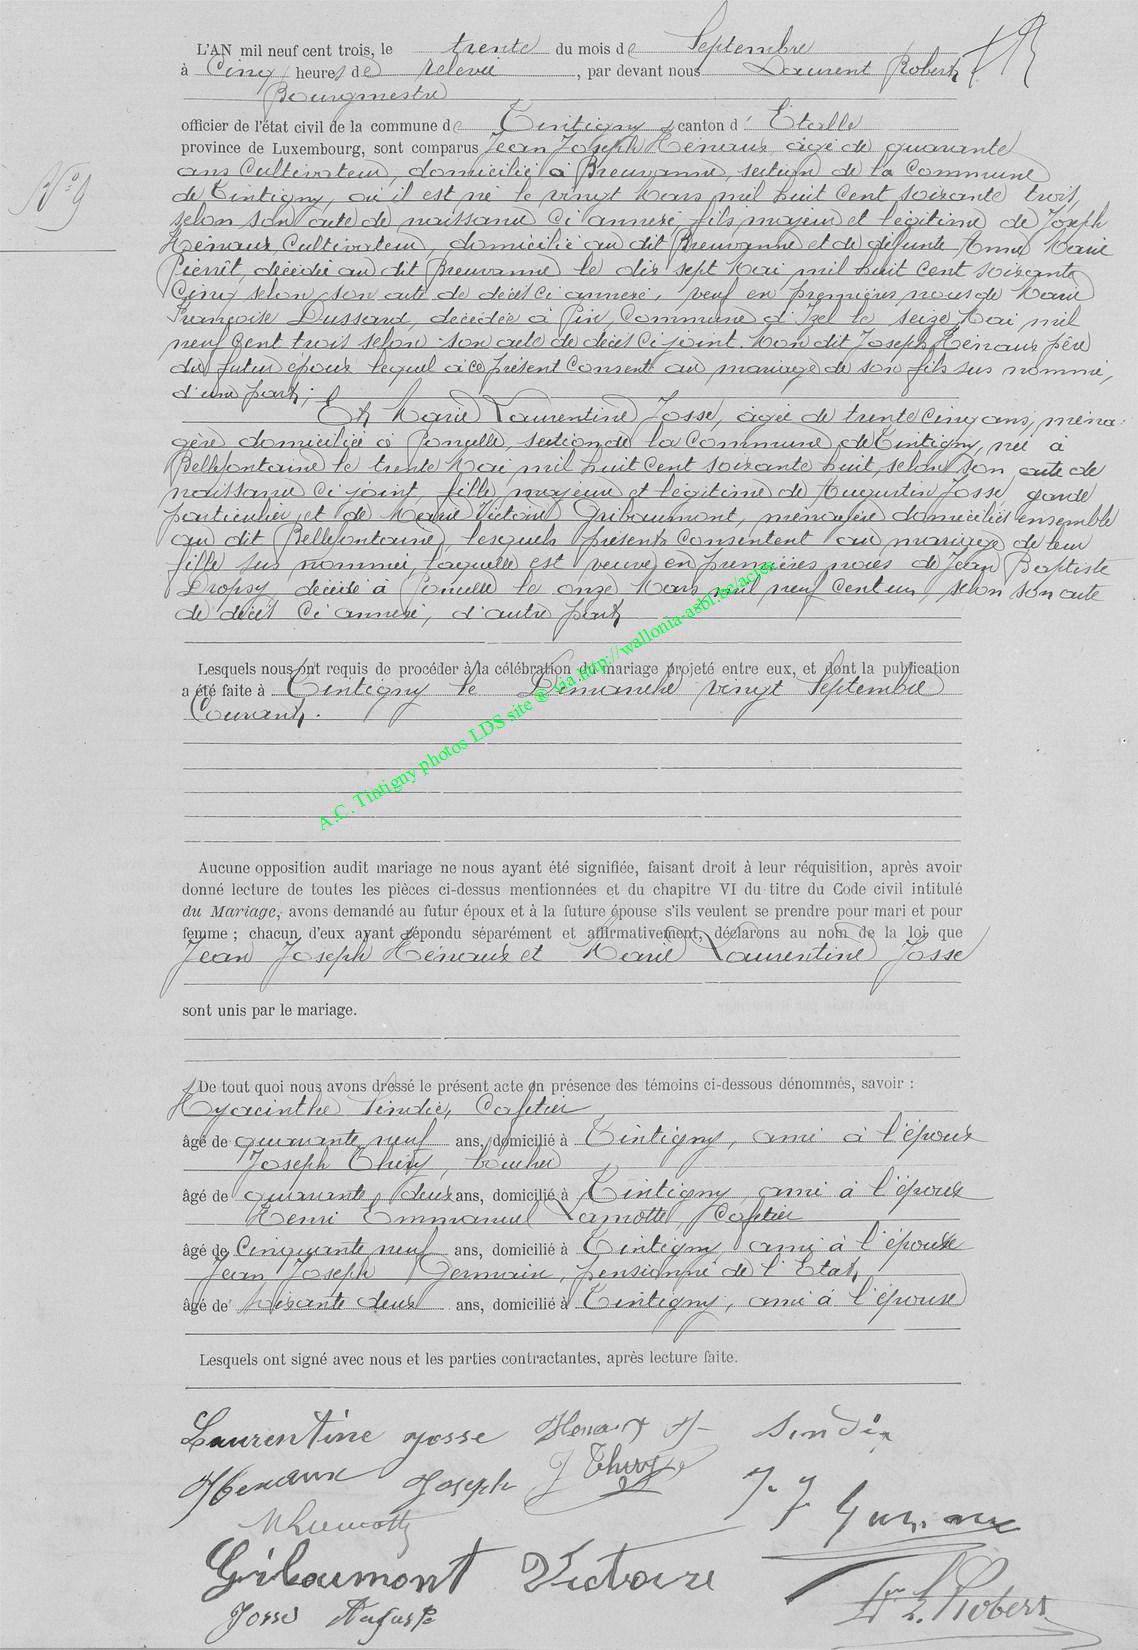 L'AN mil neuf cent trois, le trente du mois de Septembre
à Cinq heures de relevée, par devant nous Laurent Robert
Bourgmestre
officier de l'état civil de la commune de Tintigny, canton d'Etalle
province de Luxembourg, sont comparus Jean Joseph Hénaux, âgé de quarante
N° 9
ans Cultivateur, domicilié à Breuvanne, section de la Commune
de Tintigny, où il est né le vingt Mars mil huit cent soixante trois,
selon son acte de naissance ci annexé, fils majeur et légitime de Joseph
Hénaux Cultivateur, domicilié au dit Breuvanne et de défunte Anne Marie
Pierret, décédée au dit Breuvanne le dix sept Mai mil huit cent soixante
cinq selon son acte de décès ci annexé, veuf en premières noces de Marie
Françoise Dussard, décédée à Pin, Commune d'Izel le seize Mai mil
neuf cent trois selon son acte de décès ci joint. Mon dit Joseph Hénaux père
du futur époux lequel à ce présent consent au mariage de son fils sus nommé,
d'une part;
Et Marie Laurentine Josse, âgée de trente cinq ans, ména-
gère domiciliée à Poncelle, section de la Commune de Tintigny, née à
Bellefontaine le trente Mai mil huit cent soixante huit, selon son acte de
naissance ci joint, fille majeure et légitime de Augustin Josse, garde
particulier et de Marie Victoire Gribaumont, ménagère domiciliés ensemble
au dit Bellefontaine, lesquels présents consentent au mariage de leur
fille sus nommée, laquelle est veuve en premières noces de Jean Baptiste
Dropsy, décédé à Poncelle le onze Mars mil neuf cent un, selon son acte
de décès ci annexé, d'autre part
Lesquels nous ont requis de procéder à la célébration du mariage projeté entre eux, et dont la publication
a été faite à Tintigny le Dimanche vingt Septembre
Courant.
A.C. Tintigny photos LDS site @ via http://wallonia-asbl.be/actes
Aucune opposition audit mariage ne nous ayant été signifiée, faisant droit à leur réquisition, après avoir
donné lecture de toutes les pièces ci-dessus mentionnées et du chapitre VI du titre du Code civil intitulé
du Mariage, avons demandé au futur époux et à la future épouse s'ils veulent se prendre pour mari et pour
femme ; chacun d'eux ayant répondu séparément et affirmativement, déclarons au nom de la loi que
Jean Joseph Hénaux et Marie Laurentine Josse
sont unis par le mariage.
De tout quoi nous avons dressé le présent acte en présence des témoins ci-dessous dénommés, savoir :
Hyacinthe Sindic, Cafetier
âgé de quarante neuf ans, domicilié à Tintigny, ami à l'époux
Joseph Thiry, boucher
âgé de quarante deux ans, domicilié à Tintigny, ami à l'époux
Henri Emmanuel Lamotte, Cafetier
âgé de Cinquante neuf ans, domicilié à Tintigny, ami à l'épouse
Jean Joseph Germain, pensionné de l'Etat,
âgé de soixante deux ans, domicilié à Tintigny, ami à l'épouse
Lesquels ont signé avec nous et les parties contractantes, après lecture faite.
Laurentine Josse Henaux J- Sindic
Henaux Joseph J Thiry
J. J. Germain
Gribaumont Victoire
Josse Auguste L. Robert